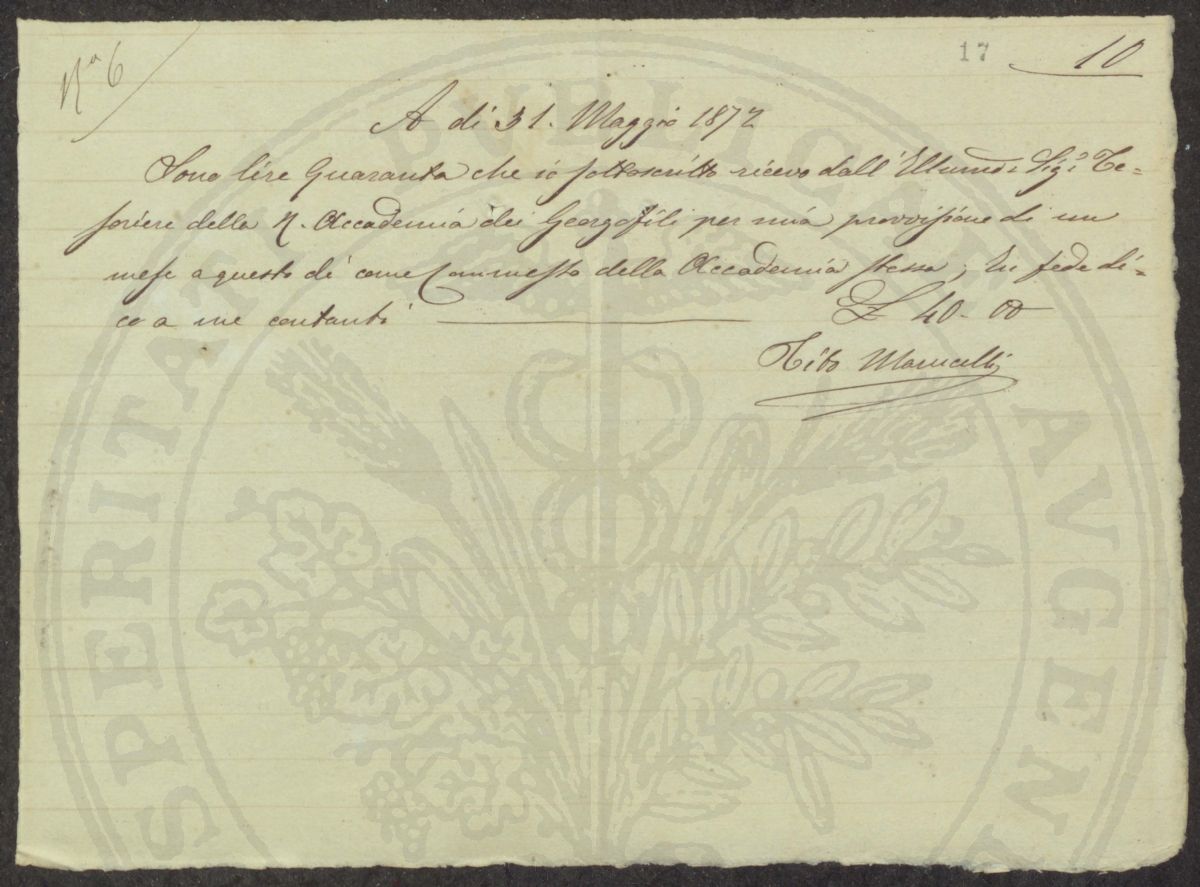 Nº 6
17 10
A dì 31. Maggio 1872
Sono lire Quaranta che io sottoscritto ricevo dall' Illumo. Sigr. Te=
soriere della R. Accademia dei Georgofili per mia provvisione di un
mese a questo dì come Commesso della Accademia stessa; In fede di=
co a me contanti £ 40-00
Tito Marucelli
PROSPERITATI PUBLICAE AVGENDAE